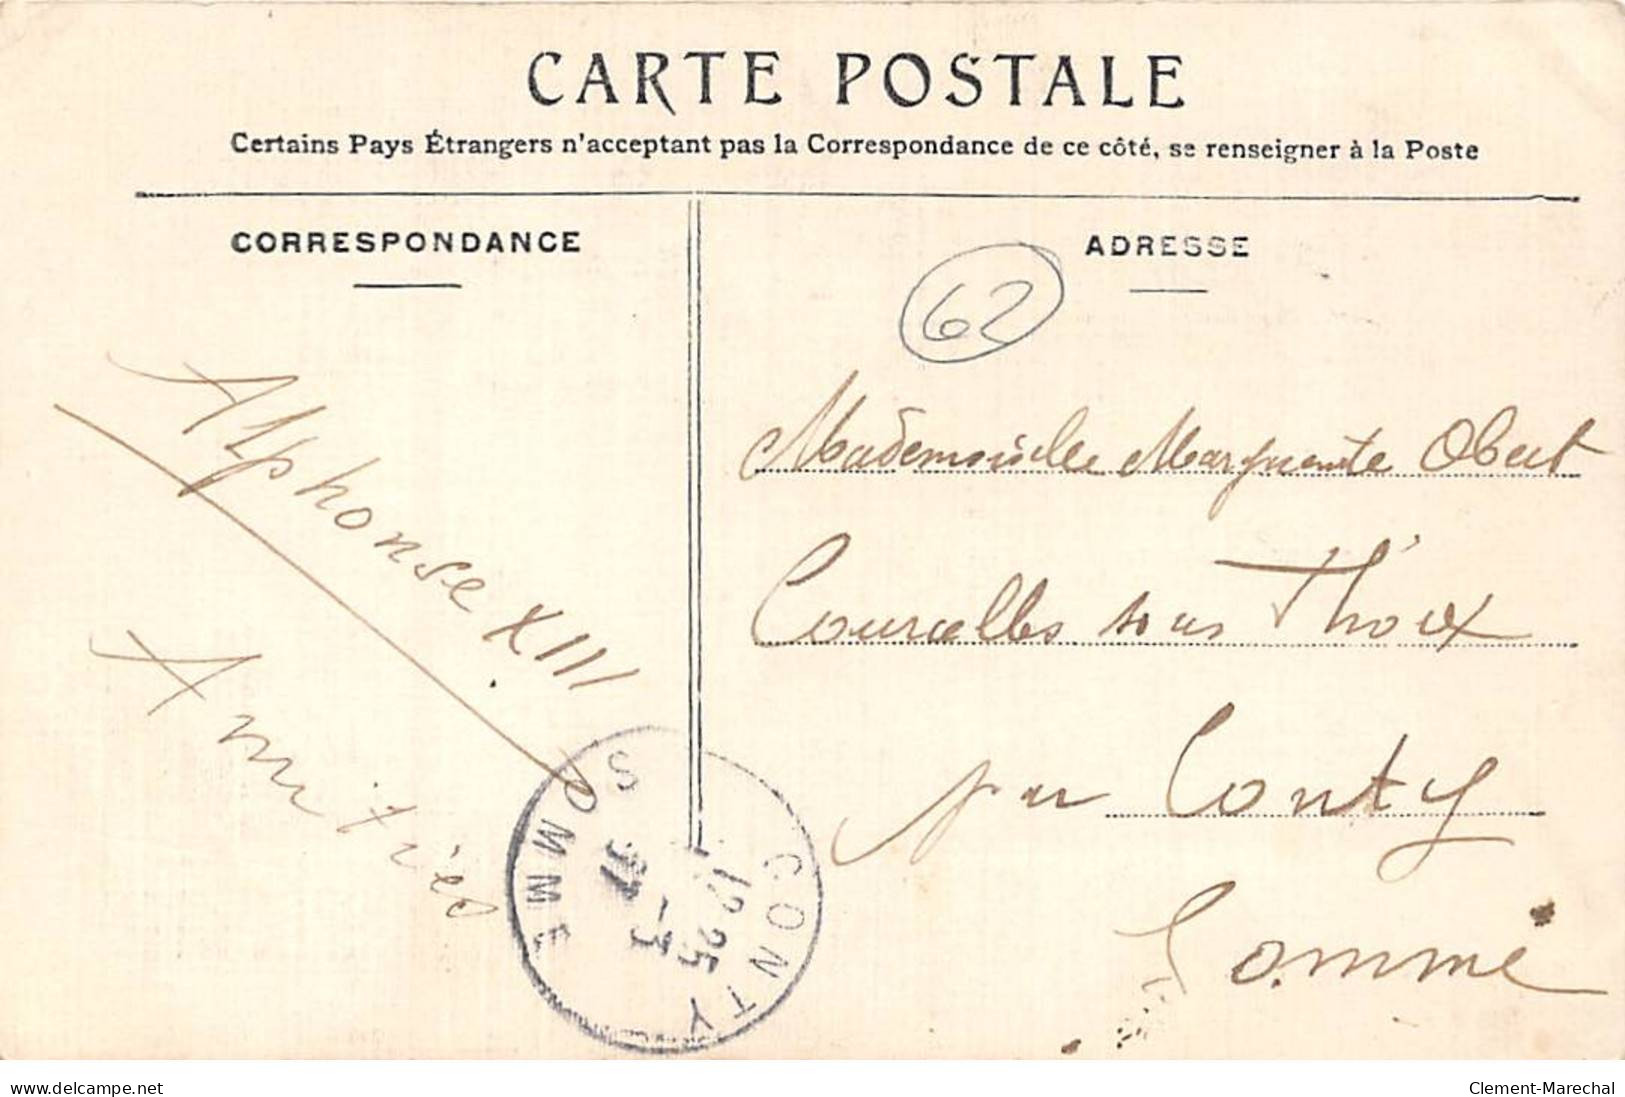 CARTE POSTALE
Certains Pays Étrangers n'acceptant pas la Correspondance de ce côté, se renseigner à la Poste
CORRESPONDANCE
ADRESSE
62
Alphonse XIII
Amitiés
Mademoiselle Marguerite Obert
Courcelles sous Thoix
par Conty
Somme
CONTY
12 25
-3
SOMME
www.delcampe.net
Clement-Marechal